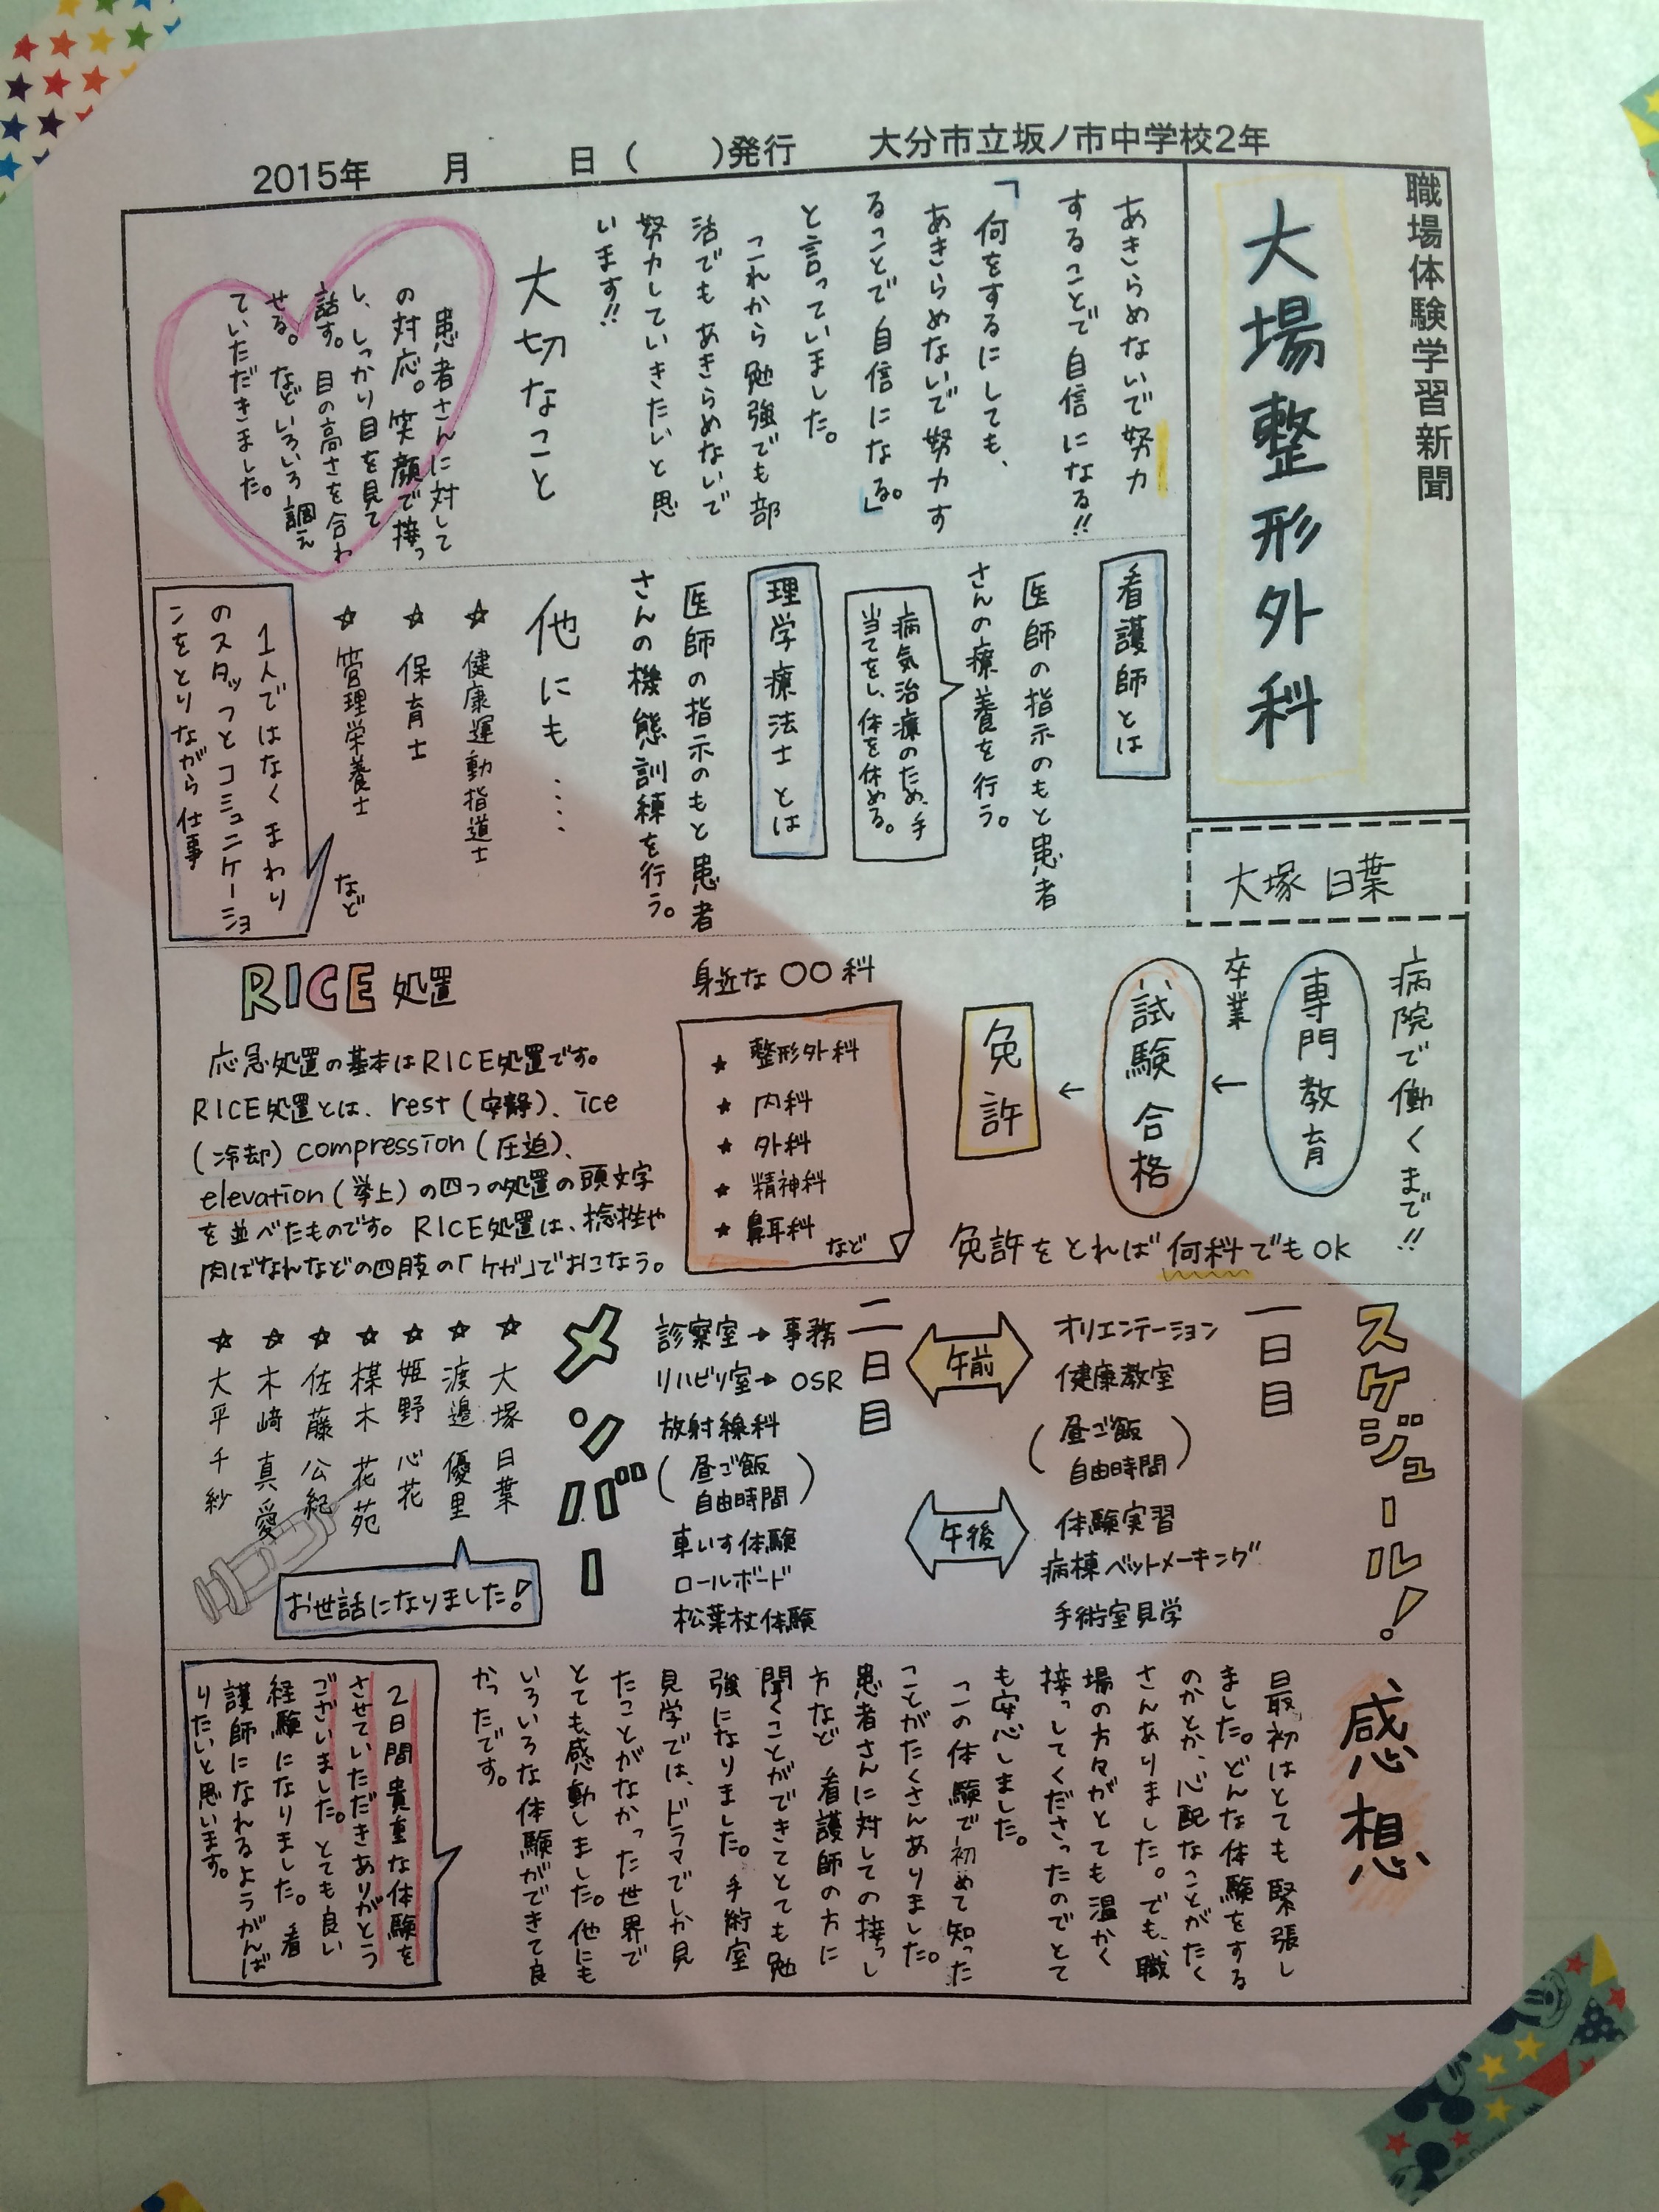 2015年　　月　　日（　　）発行　　大分市立坂ノ市中学校2年
職場体験学習新聞
大場整形外科
大塚 日葉
あきらめないで努力
することで自信になる!!
「何をするにしても、
あきらめないで努力す
ることで自信になる。」
と言っていました。
これから勉強でも部
活でもあきらめないで
努力していきたいと思
います!!
大切なこと
患者さんに対して
の対応。笑顔で接っ
し、しっかり目を見て
話す。目の高さを合わ
せる。などいろいろ調え
ていただきました。
看護師とは
医師の指示のもと患者
さんの療養を行う。
病気治療のため、手
当てをし、体を休める。
理学療法士とは
医師の指示のもと患者
さんの機態訓練を行う。
他にも....
☆ 健康運動指道士
☆ 保育士
☆ 管理学養士
など
1人ではなくまわり
のスタッフとコミュニケーショ
ンをとりながら仕事
病院で働くまで!!
専門教育
卒業
←
試験合格
←
免許
免許をとれば何科でもOK
身近な〇〇科
★ 整形外科
★ 内科
★ 外科
★ 精神科
★ 鼻耳科
など
RICE処置
応急処置の基本はRICE処置です。
RICE処置とは、rest(安静)、ice
(冷却) compression(圧迫)、
elevation(挙上)の四つの処置の頭文字
を並べたものです。RICE処置は、捻挫や
肉ばなれなどの四肢の「ケガ」でおこなう。
スケジュール!
一日目
オリエンテーション
健康教室
(昼ご飯
自由時間)
体験実習
病棟ベットメーキング
手術室見学
午前
午後
二日目
診察室→事務
リハビリ室→OSR
放射線科
(昼ご飯
自由時間)
車いす体験
ロールボード
松葉杖体験
メンバー
☆ 大塚 日葉
☆ 渡邉 優里
☆ 姫野 心花
☆ 楳木 花苑
☆ 佐藤 公紀
☆ 木﨑 真愛
☆ 大平 千紗
お世話になりました!
感想
最初はとても緊張し
ました。どんな体験をする
のかとか、心配なことがたく
さんありました。でも、職
場の方々がとても温かく
接っしてくださったのでとて
も安心しました。
この体験で初めて知った
ことがたくさんありました。
患者さんに対しての接っし
方など看護師の方に
聞くことができてとても勉
強になりました。手術室
見学では、ドラマでしか見
たことがなかった世界で
とても感動しました。他にも
いろいろな体験ができて良
かったです。
2日間貴重な体験を
させていただきありがとう
ございました。とても良い
経験になりました。看
護師になれるようがんば
りたいと思います。